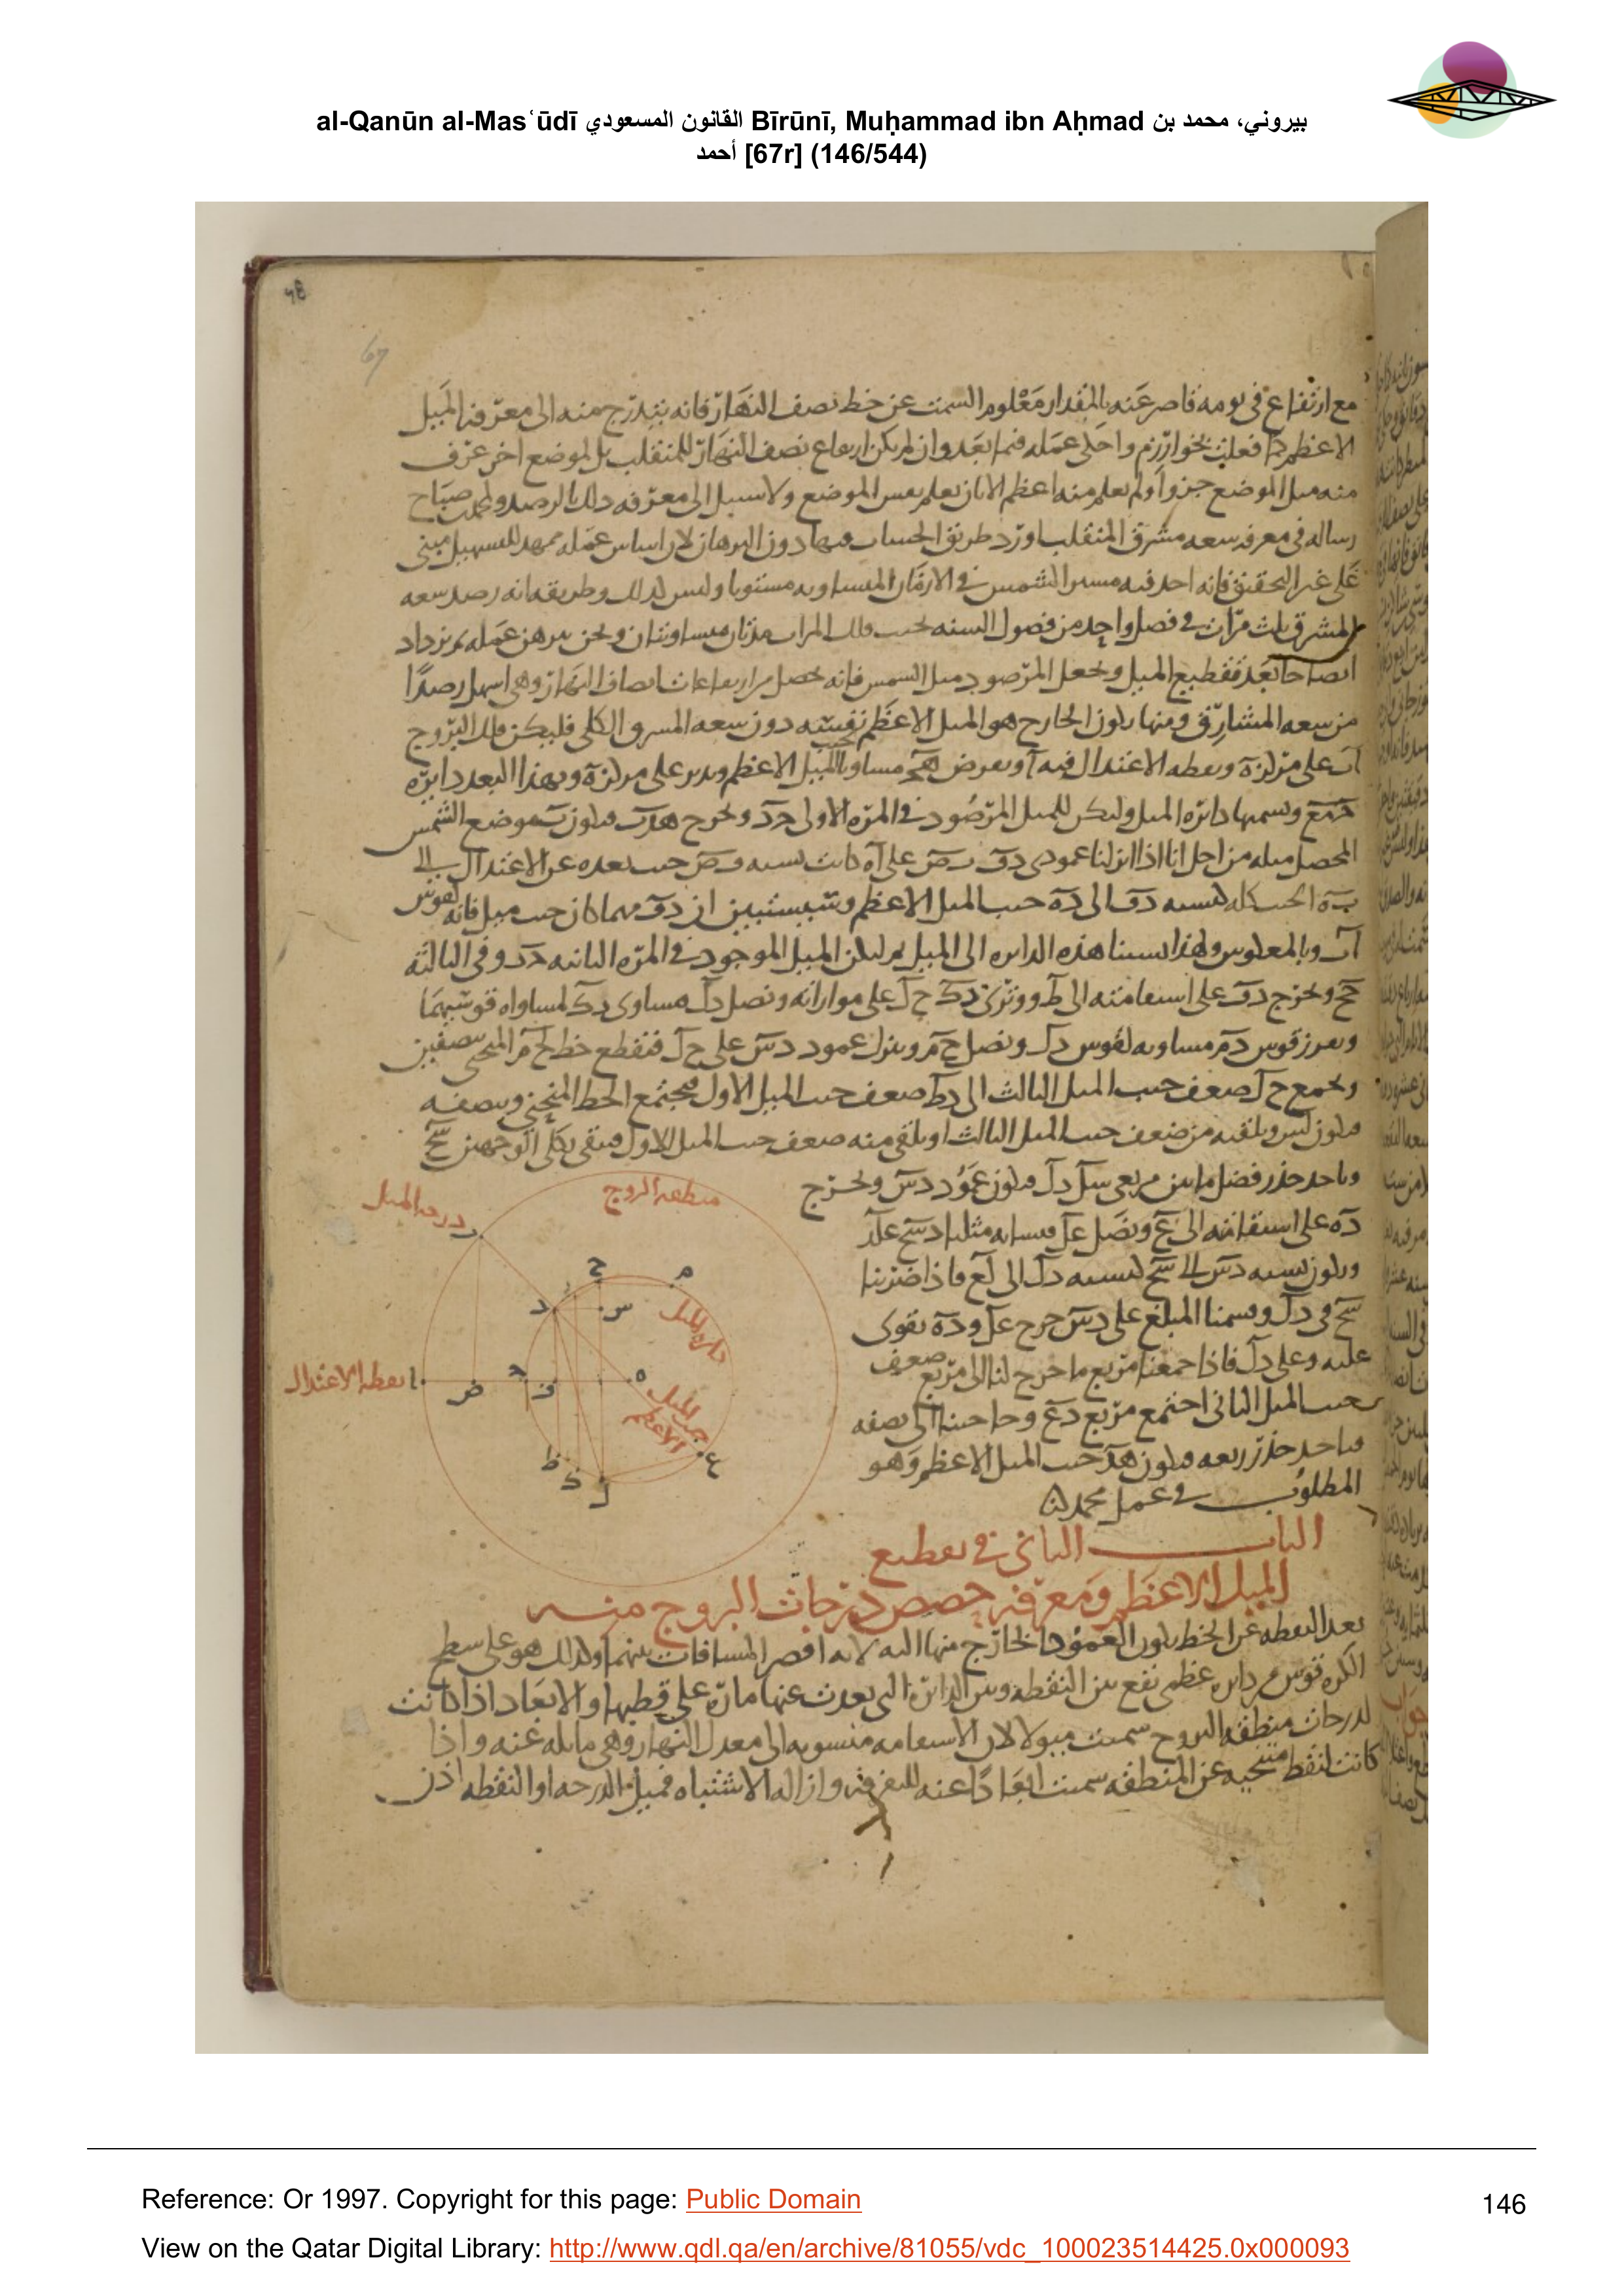 al-Qanūn al-Masʿūdī القانون المسعودي Bīrūnī, Muḥammad ibn Aḥmad بيروني، محمد بن
أحمد [67r] (146/544)
67
مع ارتفاع فى يومه قاصر عنه بالمقدار معلوم السمت عن خط نصف النهار فانه يتدرج منه الى معرفة الميل
الاعظم كما فعلت بخوارزم واحكى عمله فيما بعد وان لم يكن ارتفاع نصف النهار للمنقلب بل لموضع اخر عرف
منه ميل الموضع جزوا ولم يعلم منه اعظم الا بان يعلم نفس الموضع ولا سبيل الى معرفه ذلك بالرصد صباح
رساله فى معرفه سعه مشرق المنقلب اورد طريق الحساب فيها دون البرهان لان اساس عمله ممهد للتسهيل مبنى
على غير التحقيق فانه اخذ فيه مسير الشمس فى الازمان المتساويه مستويا وليس كذلك وطريقه انه رصد سعه
المشرق ثلث مرات فى فصل واحد من فصول السنه بحيث المرات مدتان متساويتان ونحن نبرهن عمله ثم نزداد
ايضاحا بعد تقطيع الميل ونجعل المرصود ميل الشمس فانه يحصل من ارتفاعات انصاف النهار وهى اسهل رصدا
من سعه المشارق ومنها يكون الخارج هو الميل الاعظم نفسه دون سعه المشرق الكلى فليكن فلك البروج
اب على مركز ه ونقطه الاعتدال فيه ا ونفرض هج مساويا لجيب الميل الاعظم وندير على مركز ه وبهذا البعد دايره
جمع ونسميها دايره الميل وليكن للميل المرصود فى المره الاولى جد ونخرج هدب فيكون ب موضع الشمس
المحصل ميله من اجل انا اذا انزلنا عمودى دف بص على اه كانت نسبه بص جيب بعده عن الاعتدال الى
به الجيب كله كنسبه دف الى ده جيب الميل الاعظم وسيستبين ان دف مهما كان جيب ميل فانه لقوس
اب وبالمعكوس ولهذا نسبنا هذه الدايره الى الميل ثم ليكن الميل الموجود فى المره الثانيه وفى الثالثه
جح ونخرج دف على استقامته الى ط ووترى دك حل على موازاته ونصل دل مساوى دك لتساوى قوسيهما
ونفرز قوس دم مساويه لقوس دل ونصل حم وننزل عمود دس على حل فنقطع خط لحم المنحنى بنصفين
ونجمع حل ضعف جيب الميل الثالث الى دط ضعف جيب الميل الاول فيجتمع الخط المنحنى ونصفه
فيكون لس ونلقيه من ضعف جيب الميل الثالث او نلقى منه ضعف جيب الميل الاول فيبقى بكلى الوجهين سح
وناخذ جذر فضل ما بين مربعى سل دل فيكون عمود دس ونخرج
ده على استقامته الى ع ونصل عل فيشابه مثلثا دسح علد
ويكون نسبه دس الى سح كنسبه دل الى لع فاذا ضربنا
سح فى دل وقسمنا المبلغ على دس خرج عل وده يقوى
عليه وعلى دل فاذا جمعنا مربع ما خرج لنا الى مربع ضعف
جيب الميل الثانى اجتمع مربع دع
فناخذ جذر ربعه فيكون هد جيب الميل الاعظم وهو
المطلوب فى عمل محمد
منطقه البروج
درجه الميل
دايره الميل
نقطه الاعتدال
جيب الميل
الاعظم
الباب الثانى فى تقطيع
الميل الاعظم ومعرفه حصص درجات البروج منه
بعد النقطه عن الخط يكون العمود الخارج منها اليه لانه اقصر المسافات بينهما وكذلك هو على سطح
الكره قوس من دايره عظمى تقع بين النقطه وبين الدايره التى بعدت عنها ماره على قطبها والابعاد اذا كانت
لدرجات منطقه البروج سميت ميولا لان الاستقامه منسوبه الى معدل النهار وهى مايله عنه واذا
كانت لنقط متنحيه عن المنطقه سميت ابعادا عنه للتفرقه وازاله الاشتباه فميل الدرجه او النقطه اذن
Reference: Or 1997. Copyright for this page: Public Domain
146
View on the Qatar Digital Library: http://www.qdl.qa/en/archive/81055/vdc_100023514425.0x000093